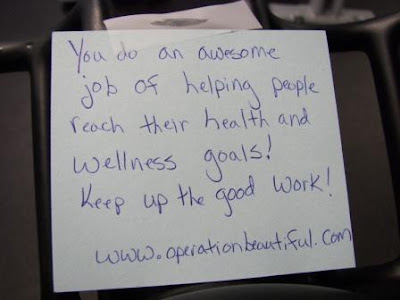 You do an awesome
job of helping people
reach their health and
wellness goals!
Keep up the good work!
www.operationbeautiful.com